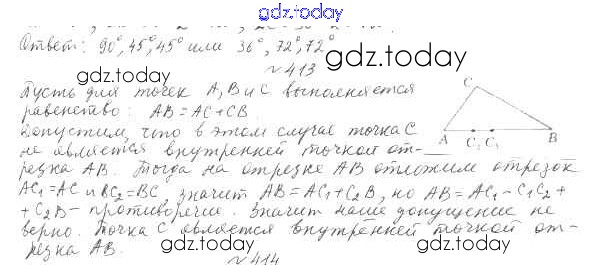 gdz.today
Ответ: 90°, 45°, 45° или 36°, 72°, 72°
gdz.today
gdz.today
№ 413
Пусть для точек A, B и C выполняется
равенство: AB = AC + CB.
gdz.today
gdz.today
Допустим, что в этом случае точка C
не является внутренней точкой от-
резка AB. Тогда на отрезке AB отложим отрезок
gdz.today
AC₁ = AC и BC₂ = BC, значит AB = AC₁ + C₂B, но AB = AC₁ - C₁C₂ +
+ C₂B - противоречие. Значит наше допущение не
gdz.today
gdz.today
верно. Точка C является внутренней точкой от-
резка AB.
gdz.today
gdz.today
№ 414
C
A
C₂
C₁
B